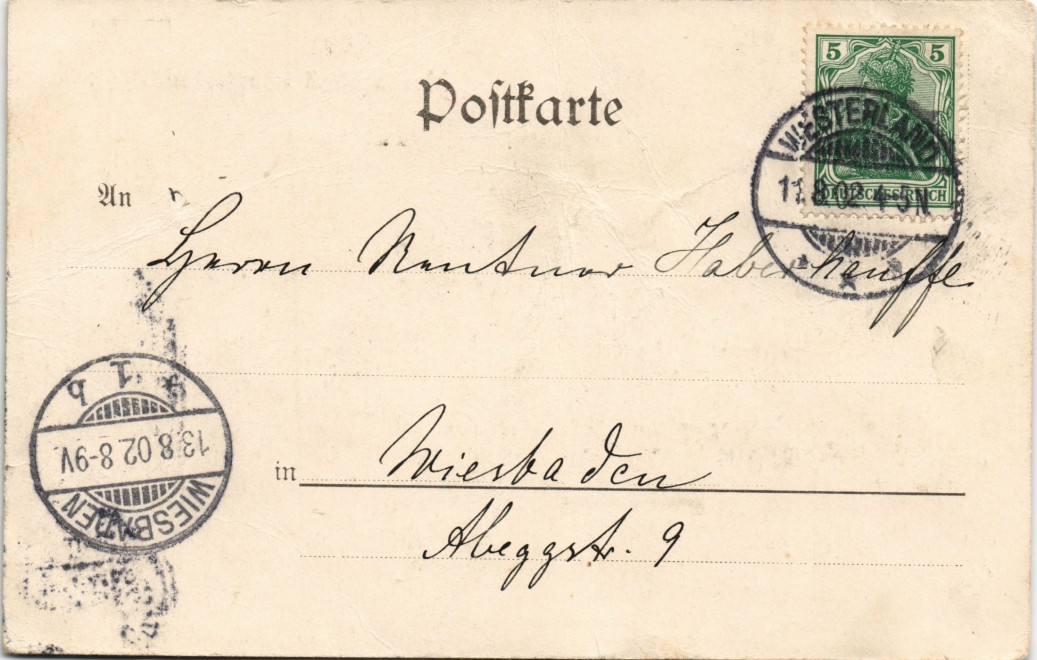 5 5
DEUTSCHES REICH
WESTERLAND
11.8.02 4-5N
Postkarte
An
Herrn Rentner Haberkauffe
in Wiesbaden
Abeggstr. 9
1 b
13.8.02 8-9V
WIESBADEN